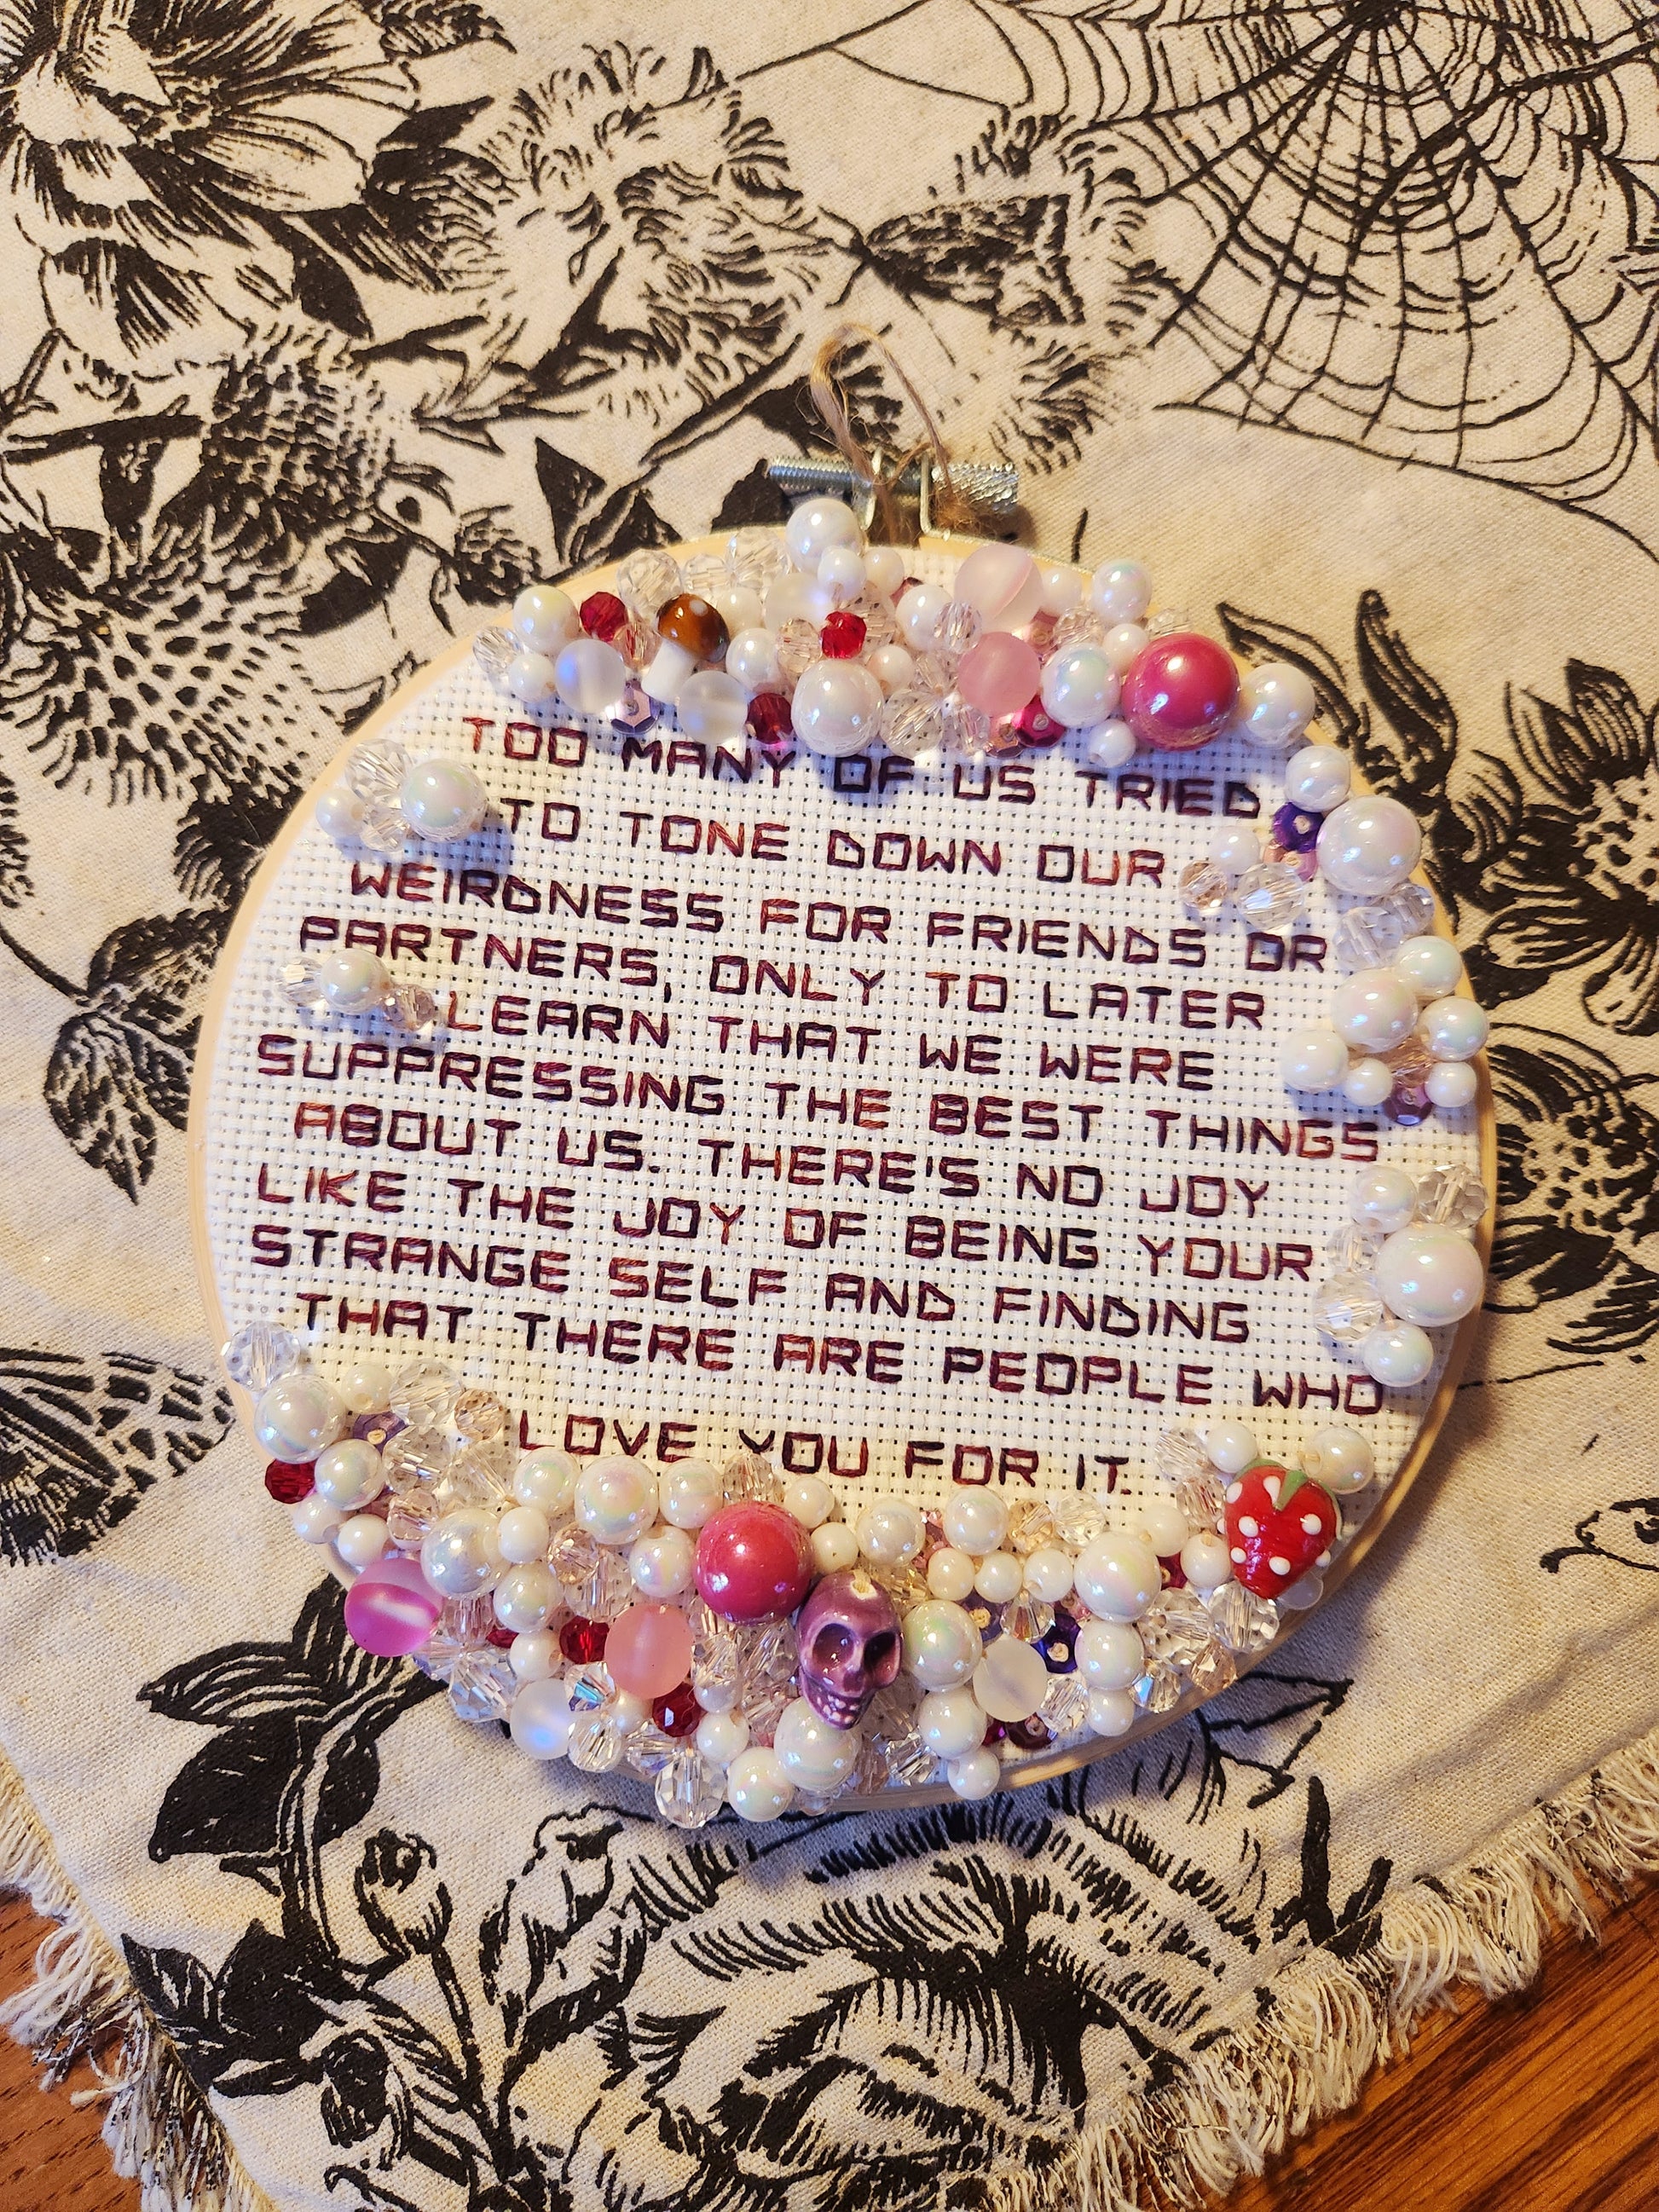 TOO MANY OF US TRIED
TO TONE DOWN OUR
WEIRDNESS FOR FRIENDS OR
PARTNERS, ONLY TO LATER
LEARN THAT WE WERE
SUPPRESSING THE BEST THINGS
ABOUT US. THERE'S NO JOY
LIKE THE JOY OF BEING YOUR
STRANGE SELF AND FINDING
THAT THERE ARE PEOPLE WHO
LOVE YOU FOR IT.